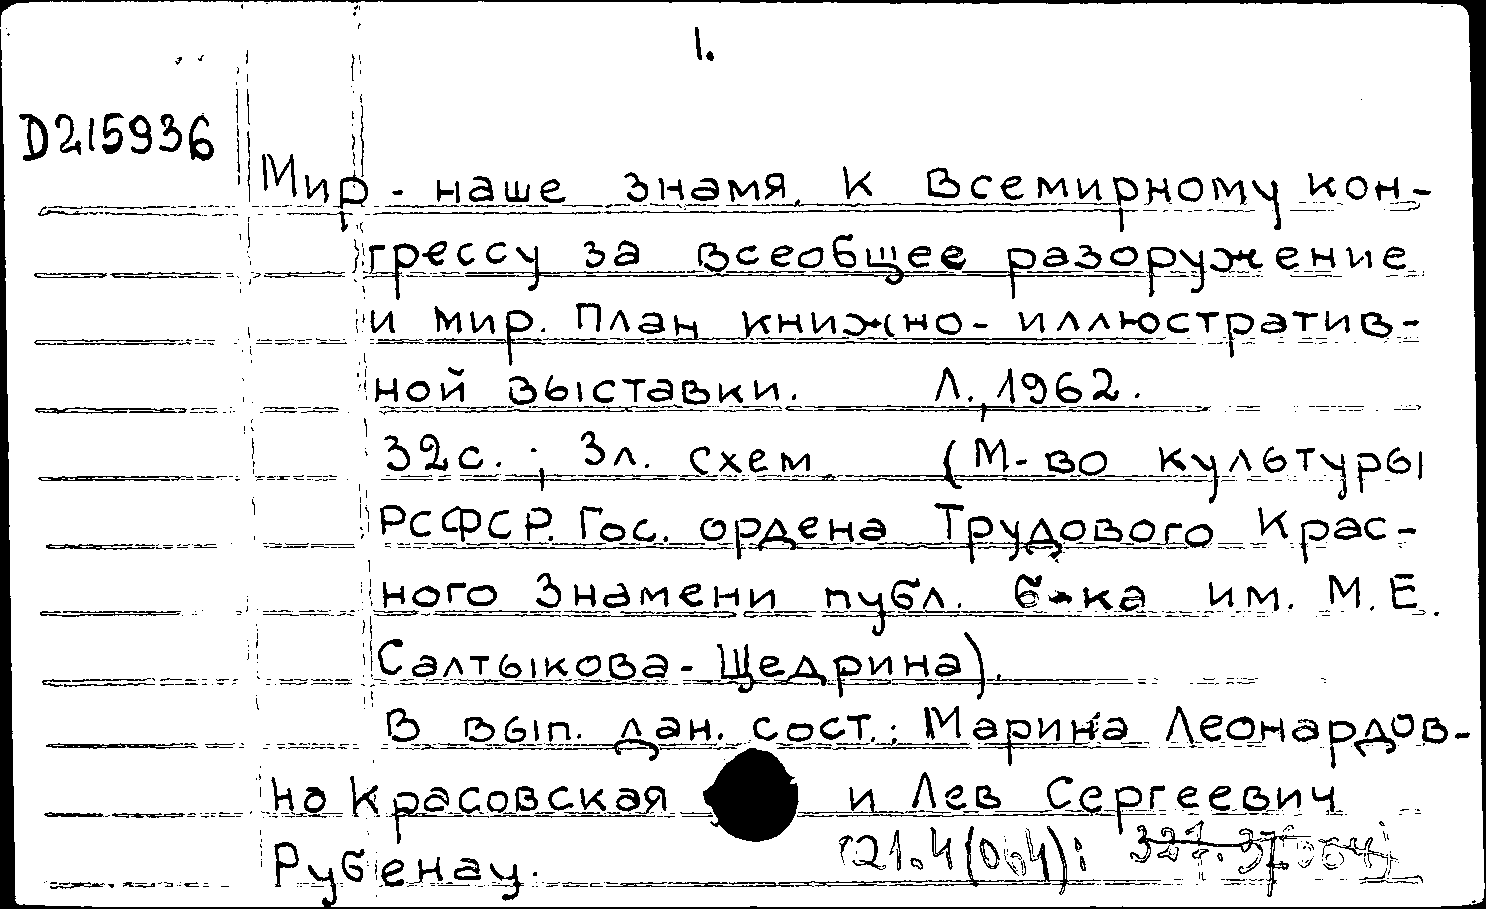 1.
D215936
Мир - наше знамя. К Всемирному кон-
грессу за всеобщее разоружение
и мир. План книжно-иллюстратив-
ной выставки. Л., 1962.
32с.; 3л. схем. (М-во культуры
РСФСР. Гос. ордена Трудового Крас-
ного Знамени публ. б-ка им. М.Е.
Салтыкова-Щедрина).
В вып. дан. сост.: Марина Леонардов-
на Красовская и Лев Сергеевич
Рубенау.